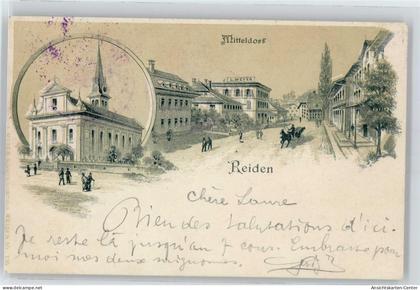 Mitteldorf
J. L. MEYER
Reiden
Chère Laure
Bien des salutations d'ici.
Je reste là jusqu'au 7 cour. Embrasse pour
moi nos deux mignonnes.
AnsichtskartenCenter
www.ansichtskarten-center.de